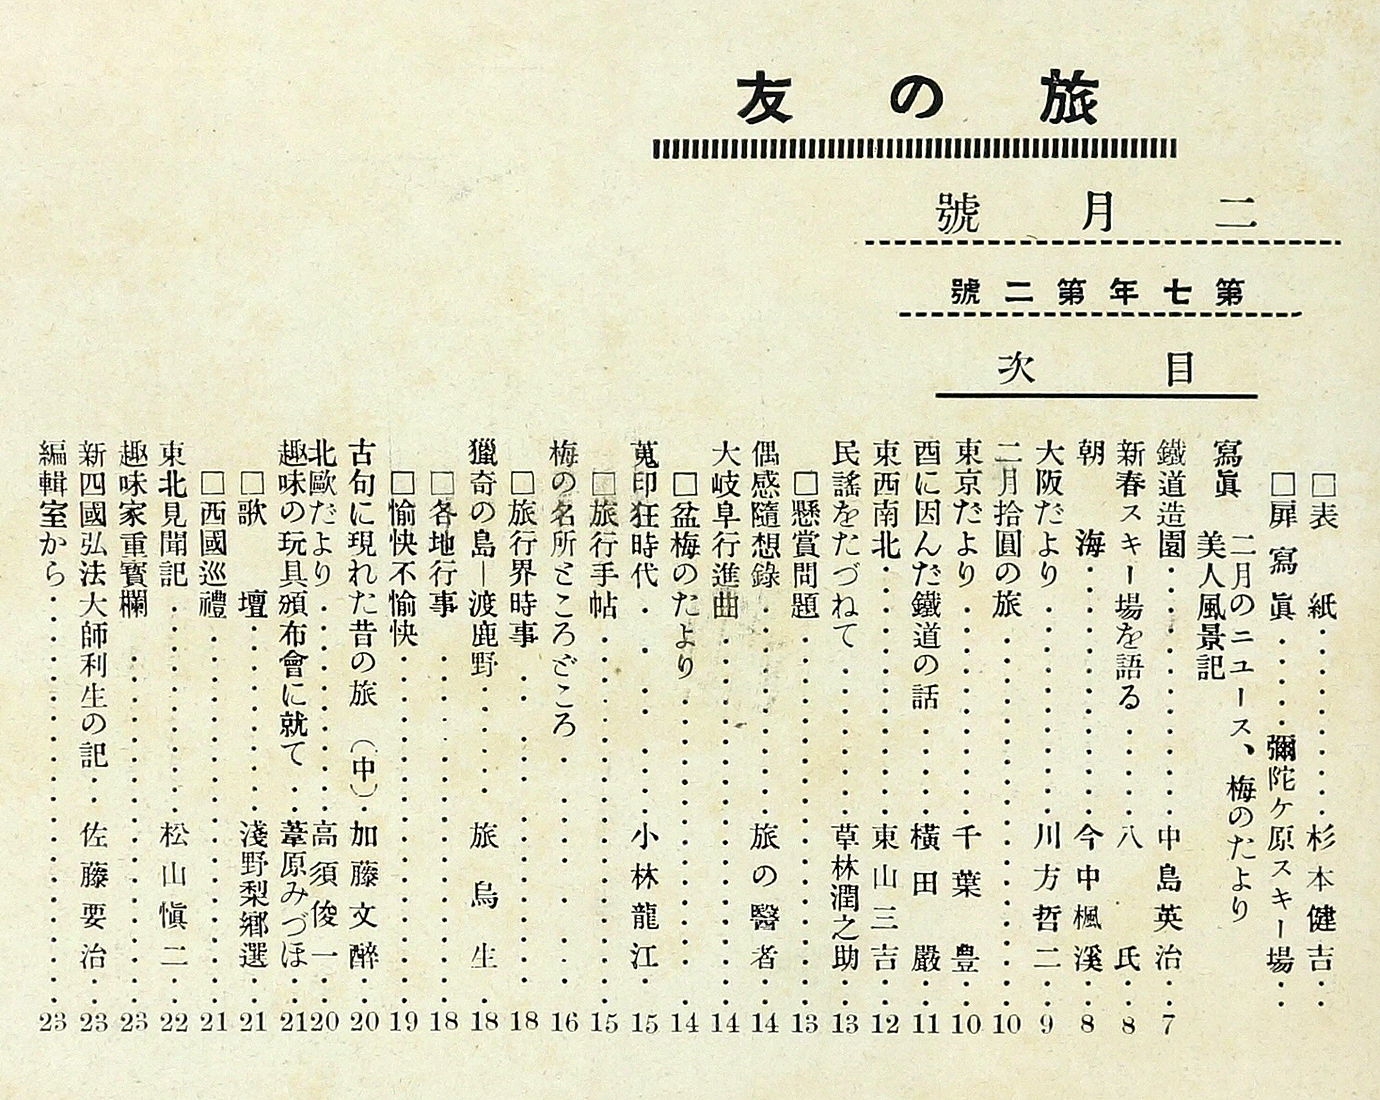 旅の友
二月號
第七年第二號
目次
□表　紙・・・・・・・・杉本健吉・・
□扉寫眞・・・・彌陀ケ原スキー場・・
寫眞　二月のニュース、梅のたより
美人風景記
鐵道造園・・・・・・・・中島英治・・7
新春スキー場を語る・・・・八　氏・・8
朝　海・・・・・・・・今中楓溪・・8
大阪だより・・・・・・・・川方哲二・・9
二月拾圓の旅・・・・・・・・・・・・10
東京だより・・・・・・・・千葉　豊・・10
酉に因んだ鐵道の話・・・・横田　嚴・・11
東西南北・・・・・・・・東山三吉・・12
民謠をたづねて・・・・・・草林潤之助・・13
□懸賞問題・・・・・・・・・・・・13
偶感隨想錄・・・・・・・・旅の醫者・・14
大岐阜行進曲・・・・・・・・・・・・14
□盆梅のたより・・・・・・・・・・・・14
蒐印狂時代・・・・・・小林龍江・・15
□旅行手帖・・・・・・・・・・・・15
梅の名所ところどころ・・・・・・・・16
□旅行界時事・・・・・・・・・・・・18
獵奇の島―渡鹿野・・・・旅烏生・・18
□各地行事・・・・・・・・・・・・18
□愉快不愉快・・・・・・・・・・・・19
古句に現れた昔の旅（中）・加藤文醉・・20
北歐だより・・・・・・・・高須俊一・・20
趣味の玩具頒布會に就て・・葦原みづほ・・21
□歌　壇・・・・・・・・淺野梨郷選・・21
□西國巡禮・・・・・・・・・・・・21
東北見聞記・・・・・・・・松山愼二・・22
趣味家重寶欄・・・・・・・・・・・・23
新四國弘法大師利生の記・・佐藤要治・・23
編輯室から・・・・・・・・・・・・23